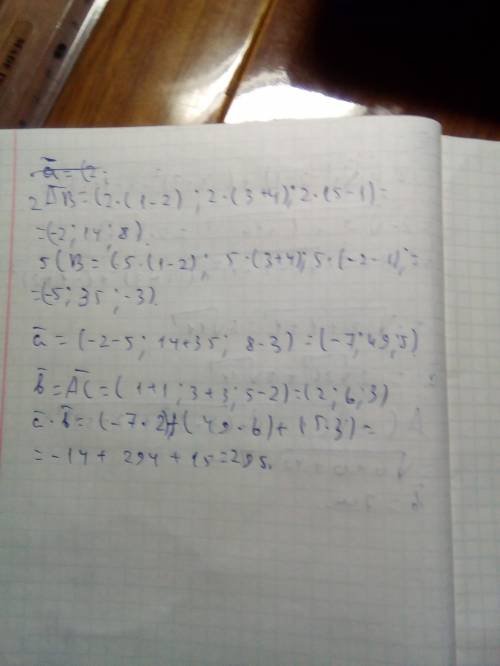 a̅ = (2;
2A̅B = (2·(1-2) ; 2·(3+4); 2·(5-1) =
= (-2; 14; 8).
5CB = (5·(1-2); 5·(3+4); 5·(-2-1); =
= (-5; 35; -3).
a̅ = (-2-5; 14+35; 8-3) = (-7; 49; 5)
b̅ = A̅C = (1+1; 3+3; 5-2) = (2; 6; 3)
a̅·b̅ = (-7·2)+(49·6)+(5·3) =
= -14 + 294 + 15 = 295.